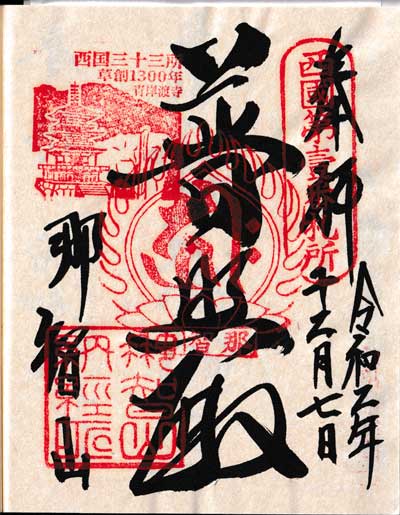 西国三十三所
草創1300年
青岸渡寺
西國第壹番札所
奉拝
令和元年
十二月七日
普照殿
那智
那智山